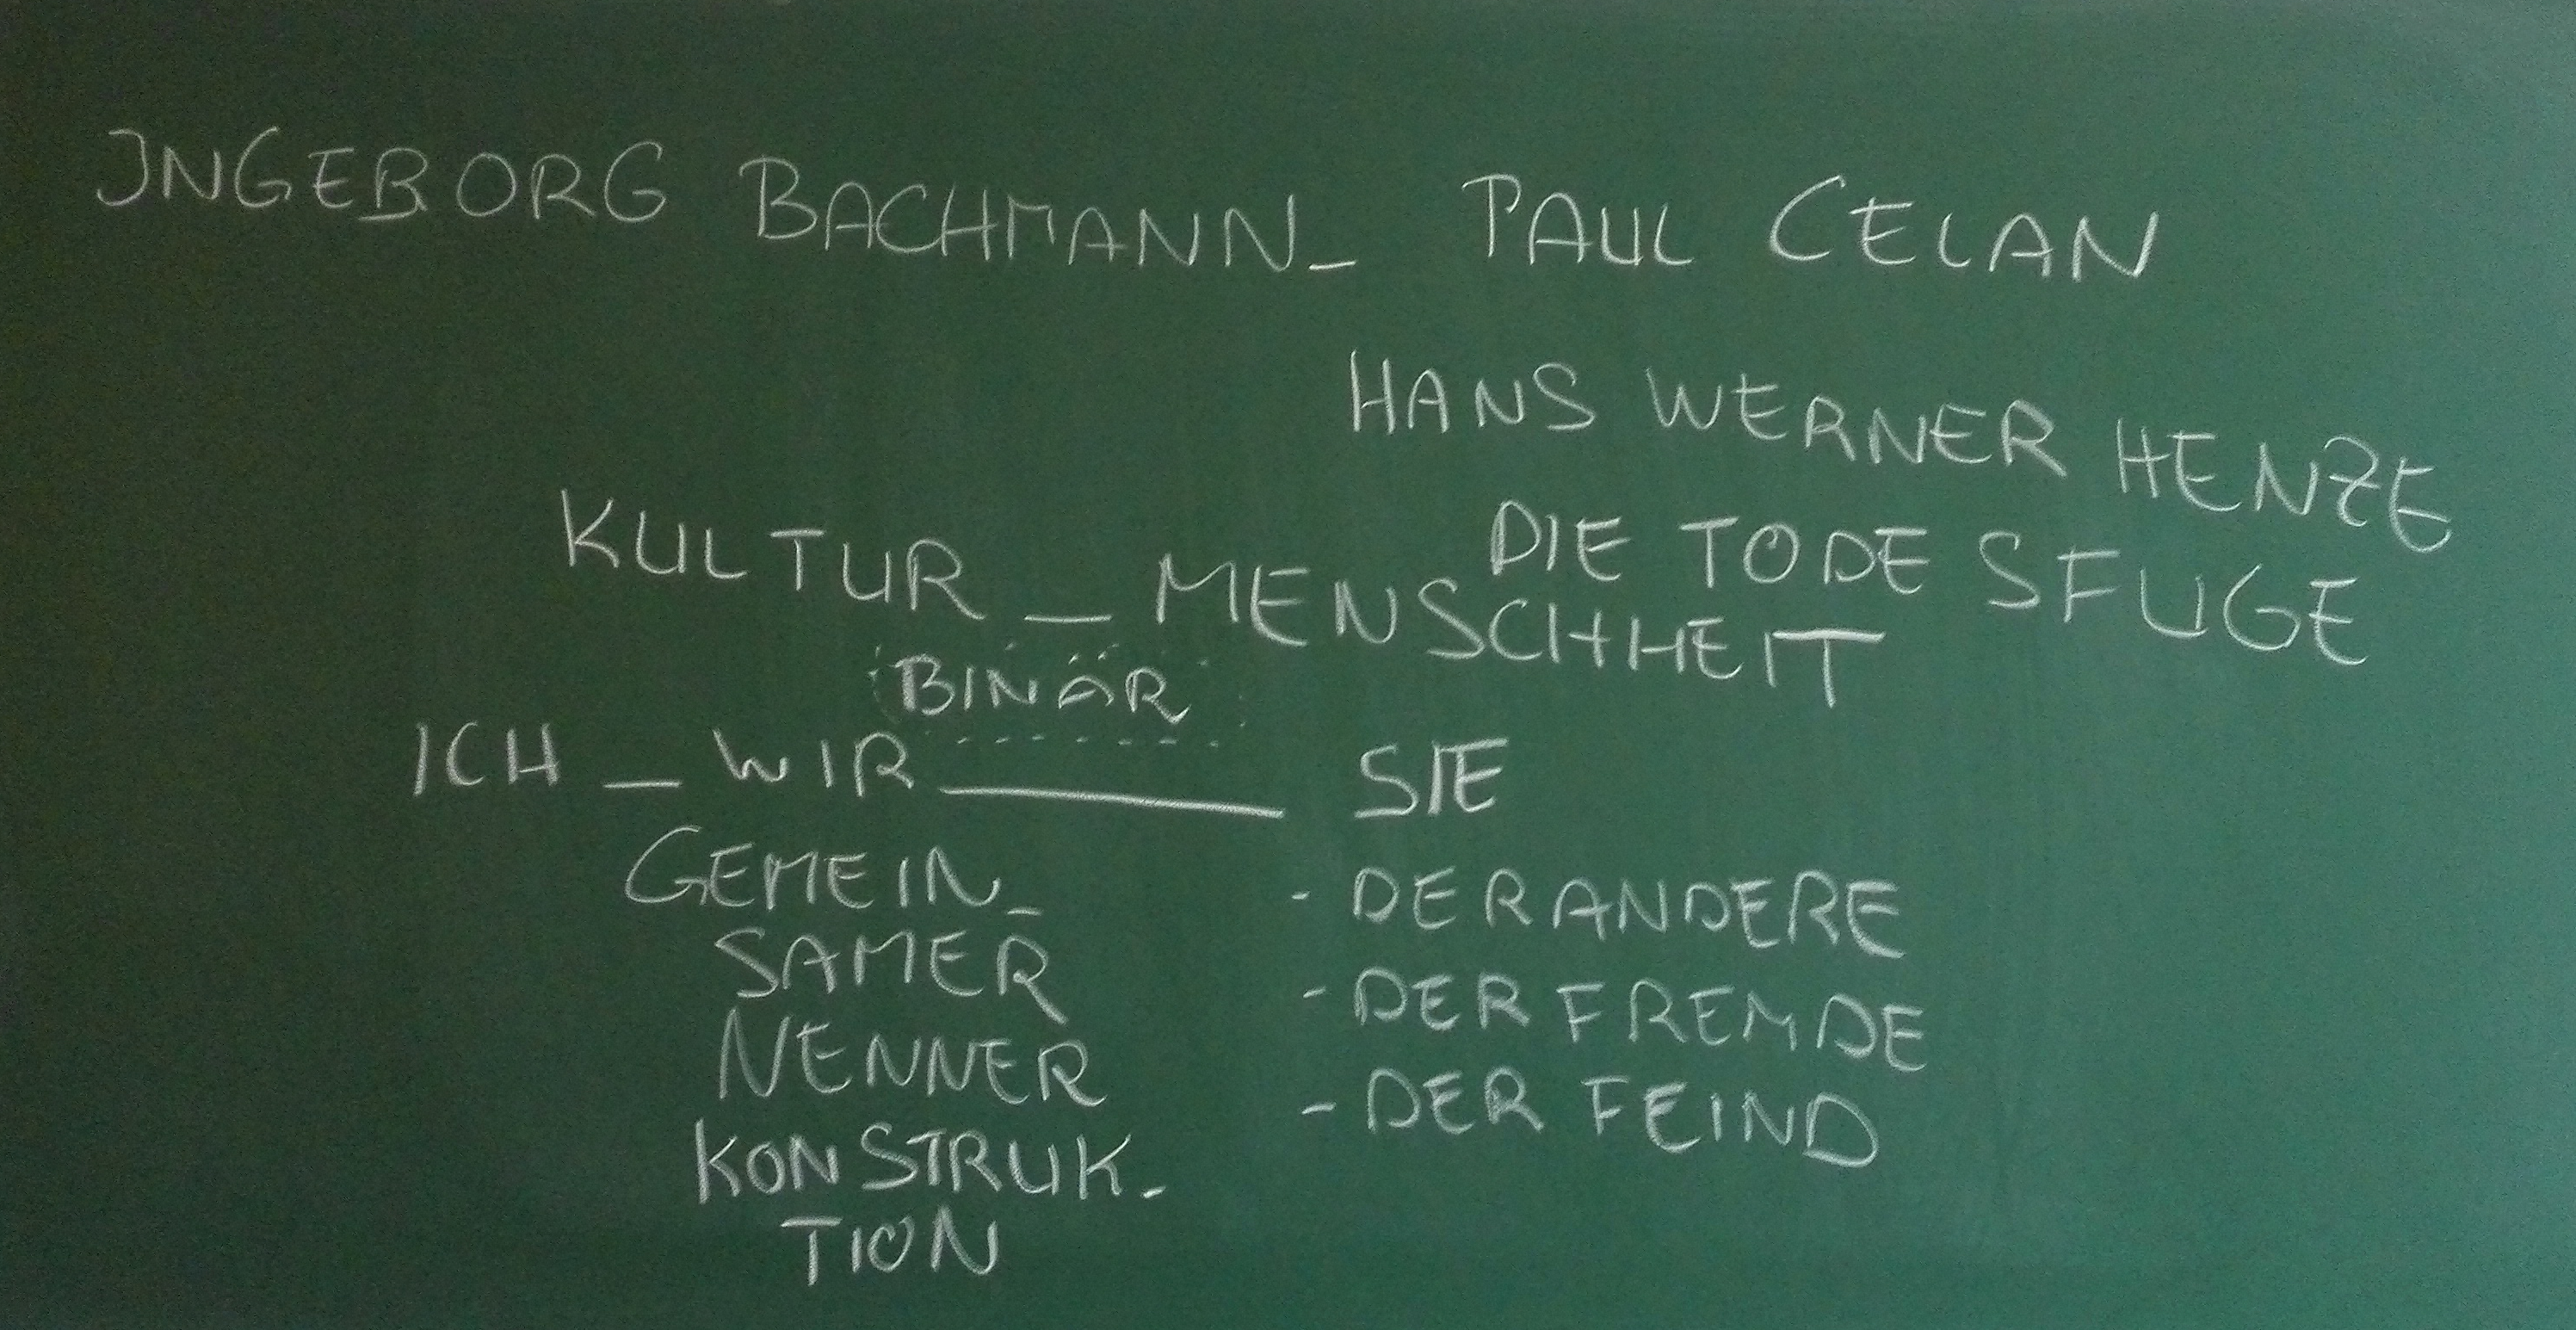 INGEBORG BACHMANN_ PAUL CELAN
HANS WERNER HENZE
DIE TODESFUGE
KULTUR _ MENSCHHEIT
BINÄR
ICH _ WIR ______ SIE
GEMEIN_
SAMER
NENNER
KONSTRUK-
TION
- DER ANDERE
- DER FREMDE
- DER FEIND